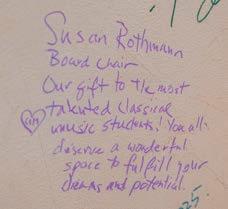 Susan Rothmann
Board Chair
Our gift to the most
talented classical
music students! You all
deserve a wonderful
space to fulfill your
dreams and potential.
25.